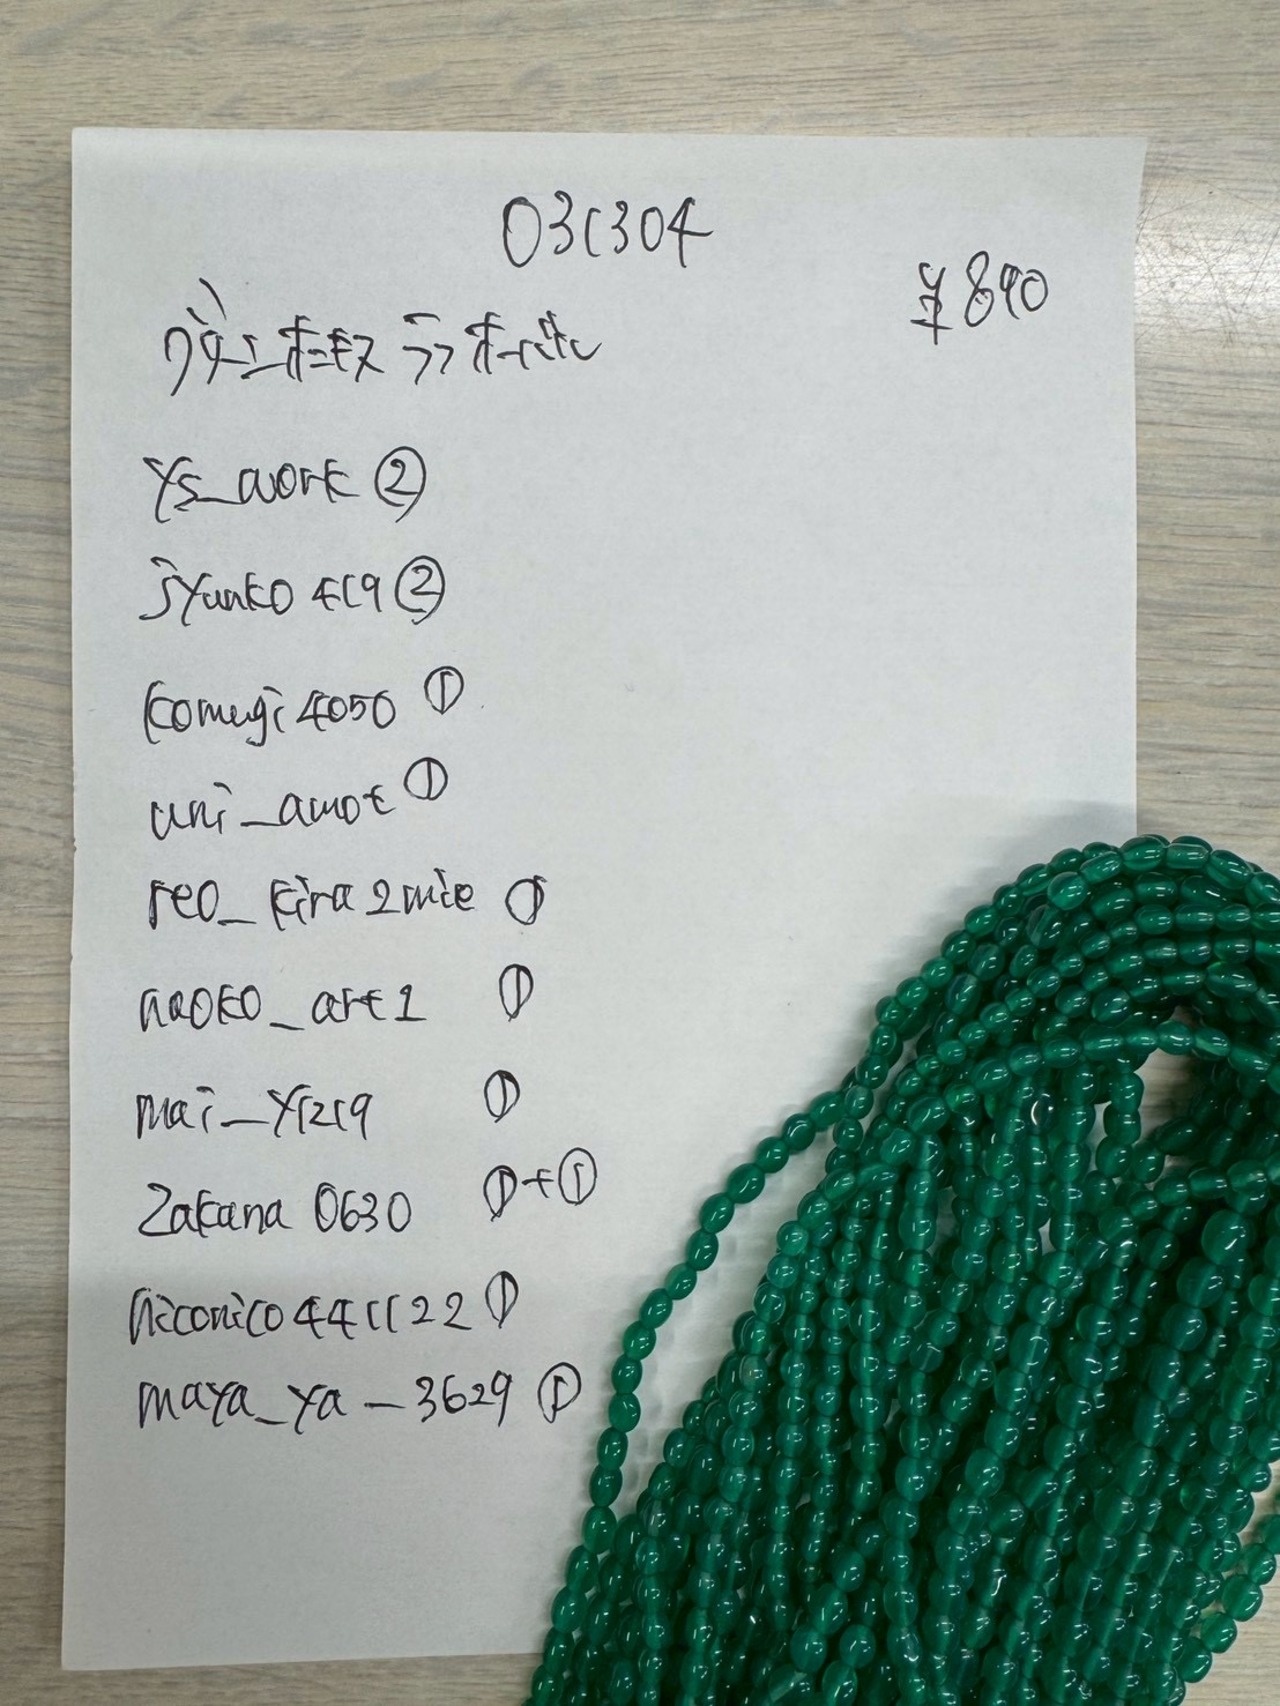 031304
¥890
グリーンオニキス ラフオーバル
ys_work ②
jyunko419 ②
komugi4050 ①
uni_amot ①
reo_kira2mie ①
naoko_art1 ①
mai_y1219 ①
Zakana0630 ①+①
niconico441122 ①
maya_ya_3629 ①